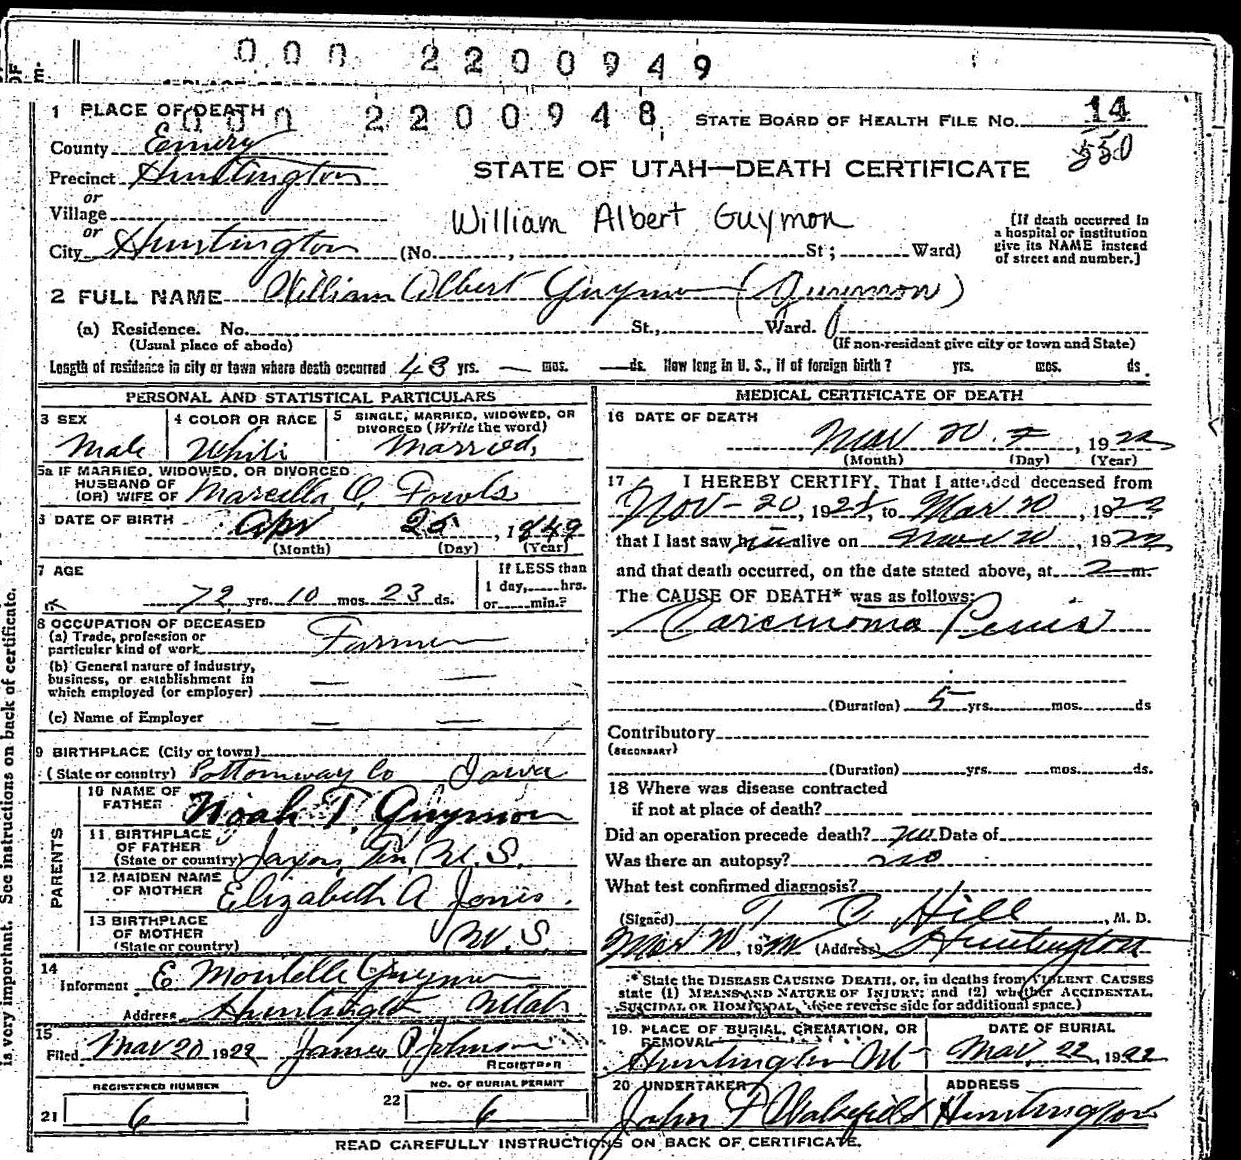 000 2200949
1 PLACE OF DEATH
000 2200948
STATE BOARD OF HEALTH FILE No. 14
550
County Emery
STATE OF UTAH—DEATH CERTIFICATE
Precinct Huntington
or
Village
William Albert Guymon
(If death occurred in a hospital or institution give its NAME instead of street and number.]
or
City Huntington (No. , St; Ward)
2 FULL NAME William Albert Guymon (Guymon)
(a) Residence. No. St., Ward.
(Usual place of abode) (If non-resident give city or town and State)
Length of residence in city or town where death occurred 43 yrs. — mos. —ds. How long in U. S., if of foreign birth? yrs. mos. ds.
PERSONAL AND STATISTICAL PARTICULARS
3 SEX
Male
4 COLOR OR RACE
White
5 SINGLE, MARRIED, WIDOWED, OR
DIVORCED (Write the word)
Married,
5a IF MARRIED, WIDOWED, OR DIVORCED
HUSBAND OF
(OR) WIFE OF Marcella O, Fowls
6 DATE OF BIRTH Apr 25, 1849
(Month) (Day) (Year)
7 AGE
72 yrs. 10 mos. 23 ds.
If LESS than
1 day, hrs.
or min.?
8 OCCUPATION OF DECEASED
(a) Trade, profession or
particular kind of work Farmer
(b) General nature of industry,
business, or establishment in
which employed (or employer) — —
(c) Name of Employer — —
9 BIRTHPLACE (City or town)
(State or country) Pottomway Co Iowa
PARENTS
10 NAME OF
FATHER Noah T. Guymon
11 BIRTHPLACE
OF FATHER
(State or country) Jaxon, Ten, U. S.
12 MAIDEN NAME
OF MOTHER Elizabeth A Jones.
13 BIRTHPLACE
OF MOTHER
(State or country) U. S.
14
Informent E Montelle Guymon
Address Huntington Utah
15
Filed Mar 20 1922 James P Johnson
REGISTRAR
REGISTERED NUMBER
21 6
NO. OF BURIAL PERMIT
22 6
MEDICAL CERTIFICATE OF DEATH
16 DATE OF DEATH
Mar 20, 1922
(Month) (Day) (Year)
17 I HEREBY CERTIFY, That I attended deceased from
Nov - 20, 1921, to Mar 20, 1922
that I last saw him alive on Mar 20, 1922
and that death occurred, on the date stated above, at 2 m.
The CAUSE OF DEATH* was as follows:
Carcinoma Penis
(Duration) 5 yrs. mos. ds
Contributory
(SECONDARY)
(Duration) yrs. mos. ds.
18 Where was disease contracted
if not at place of death?
Did an operation precede death? no Date of
Was there an autopsy? no
What test confirmed diagnosis?
(Signed) T C Hill, M. D.
Mar 20, 1922 (Address) Huntington
* State the DISEASE CAUSING DEATH, or, in deaths from VIOLENT CAUSES
state (1) MEANS AND NATURE OF INJURY; and (2) whether ACCIDENTAL,
SUICIDAL OR HOMICIDAL. (See reverse side for additional space.)
19. PLACE OF BURIAL, CREMATION, OR
REMOVAL
Huntington Ut
DATE OF BURIAL
Mar, 22, 1922
20 UNDERTAKER
John F Wakefield
ADDRESS
Huntington
READ CAREFULLY INSTRUCTIONS ON BACK OF CERTIFICATE.
is very important. See instructions on back of certificate.